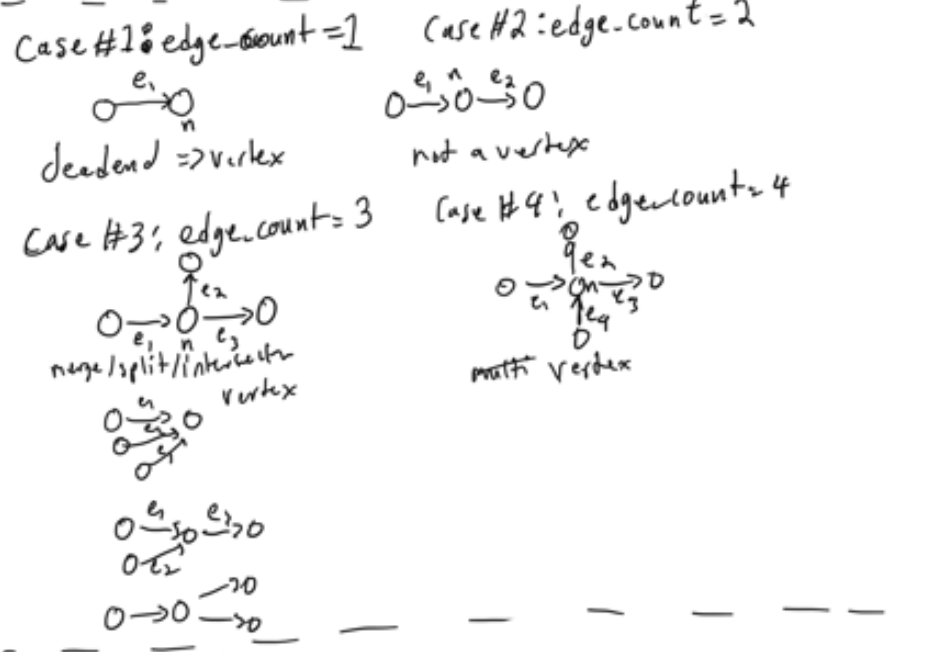 Case #1: edge_count = 1
e1
n
deadend => vertex
Case #2: edge_count = 2
e1 n e2
not a vertex
Case #3: edge_count = 3
e2
e1 n e3
merge/split/intersection
vertex
e1
e1 e3
e2
Case #4: edge_count = 4
e2
n
e1 e3
e4
vertex